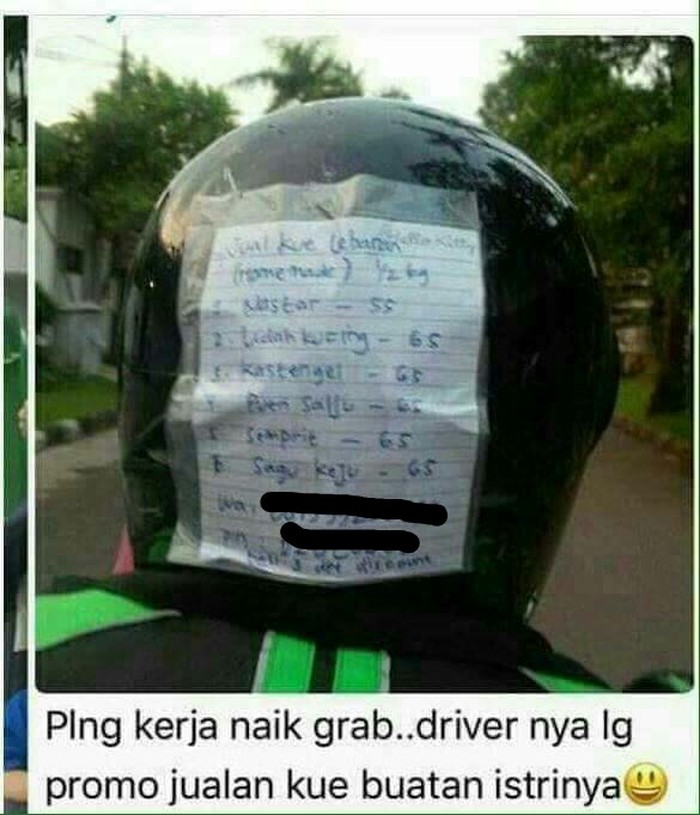 Jual kue Lebaran Hello Kitty
(Home made) 1/2 kg
1. Nastar - 55
2. Lidah kucing - 65
3. Kastengel - 65
4. Puteri Salju - 65
5. Semprit - 65
6. Sagu keju - 65
Wa:
Pin :
discount
Plng kerja naik grab..driver nya lg
promo jualan kue buatan istrinya😃